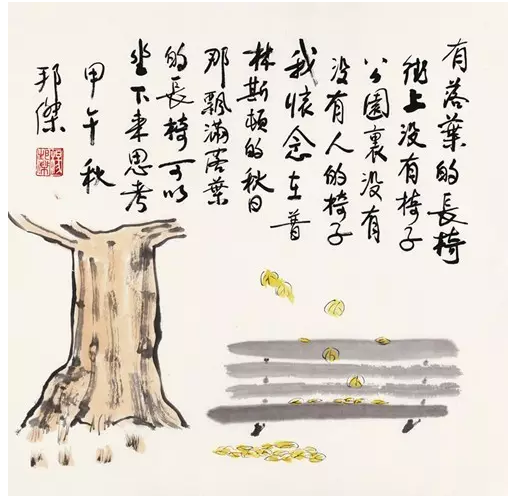 有落葉的長椅
街上沒有椅子
公園裏沒有
沒有人的椅子
我懷念在普
林斯頓的秋日
那飄滿落葉
的長椅可以
坐下來思考
甲午秋
邦傑